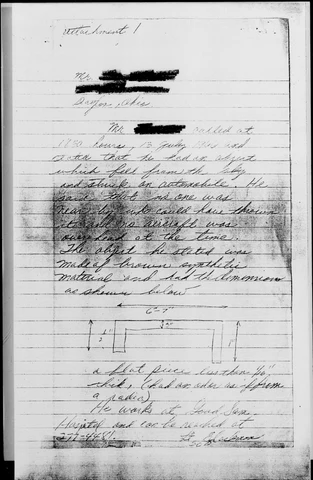 Attachment 1
Mr.
Dayton, Ohio
Mr. called at
1830 hours, 13 July and
stated that he had an object
which fell from the sky
and struck an automobile. He
said that no one was
near by who could have thrown
it and no aircraft was
overhead at the time.
The object he stated was
made of brown synthetic
material and had the dimensions
as shown below
6"-7"
a flat piece less than
thick, (had an odor as from
a radio)
He works at Good Sam.
Hospital and can be reached at
277-4481.